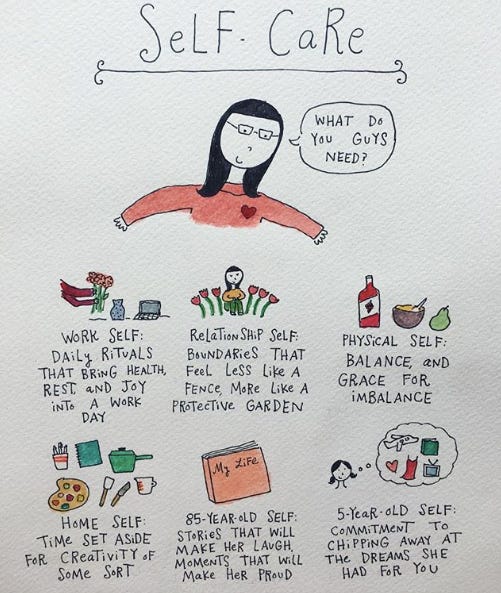 SeLF-CaRe
WHAT DO
YOU GUYS
NEED?
WORK SELF:
DAILY RITUALS
THAT BRING HEALTH,
REST, AND JOY
iNTO A WORK
DAY
RELATIONSHIP SELF:
BOUNDARIES THAT
FEEL LESS LIKE A
FENCE, MORE LIKE A
PROTECTIVE GARDEN
PHYSICAL SELF:
BALANCE, AND
GRACE FOR
iMBALANCE
HOME SELF:
TiME SET ASIDE
FOR CREATIVITY OF
SOME SORT
My LiFe
85-YEAR-OLD SELF:
STORIES THAT WILL
MAKE HER LAUGH,
MOMENTS THAT WILL
MAKE HER PROUD
5-YEAR-OLD SELF:
COMMITMENT TO
CHIPPING AWAY AT
THE DREAMS SHE
HAD FOR YOU